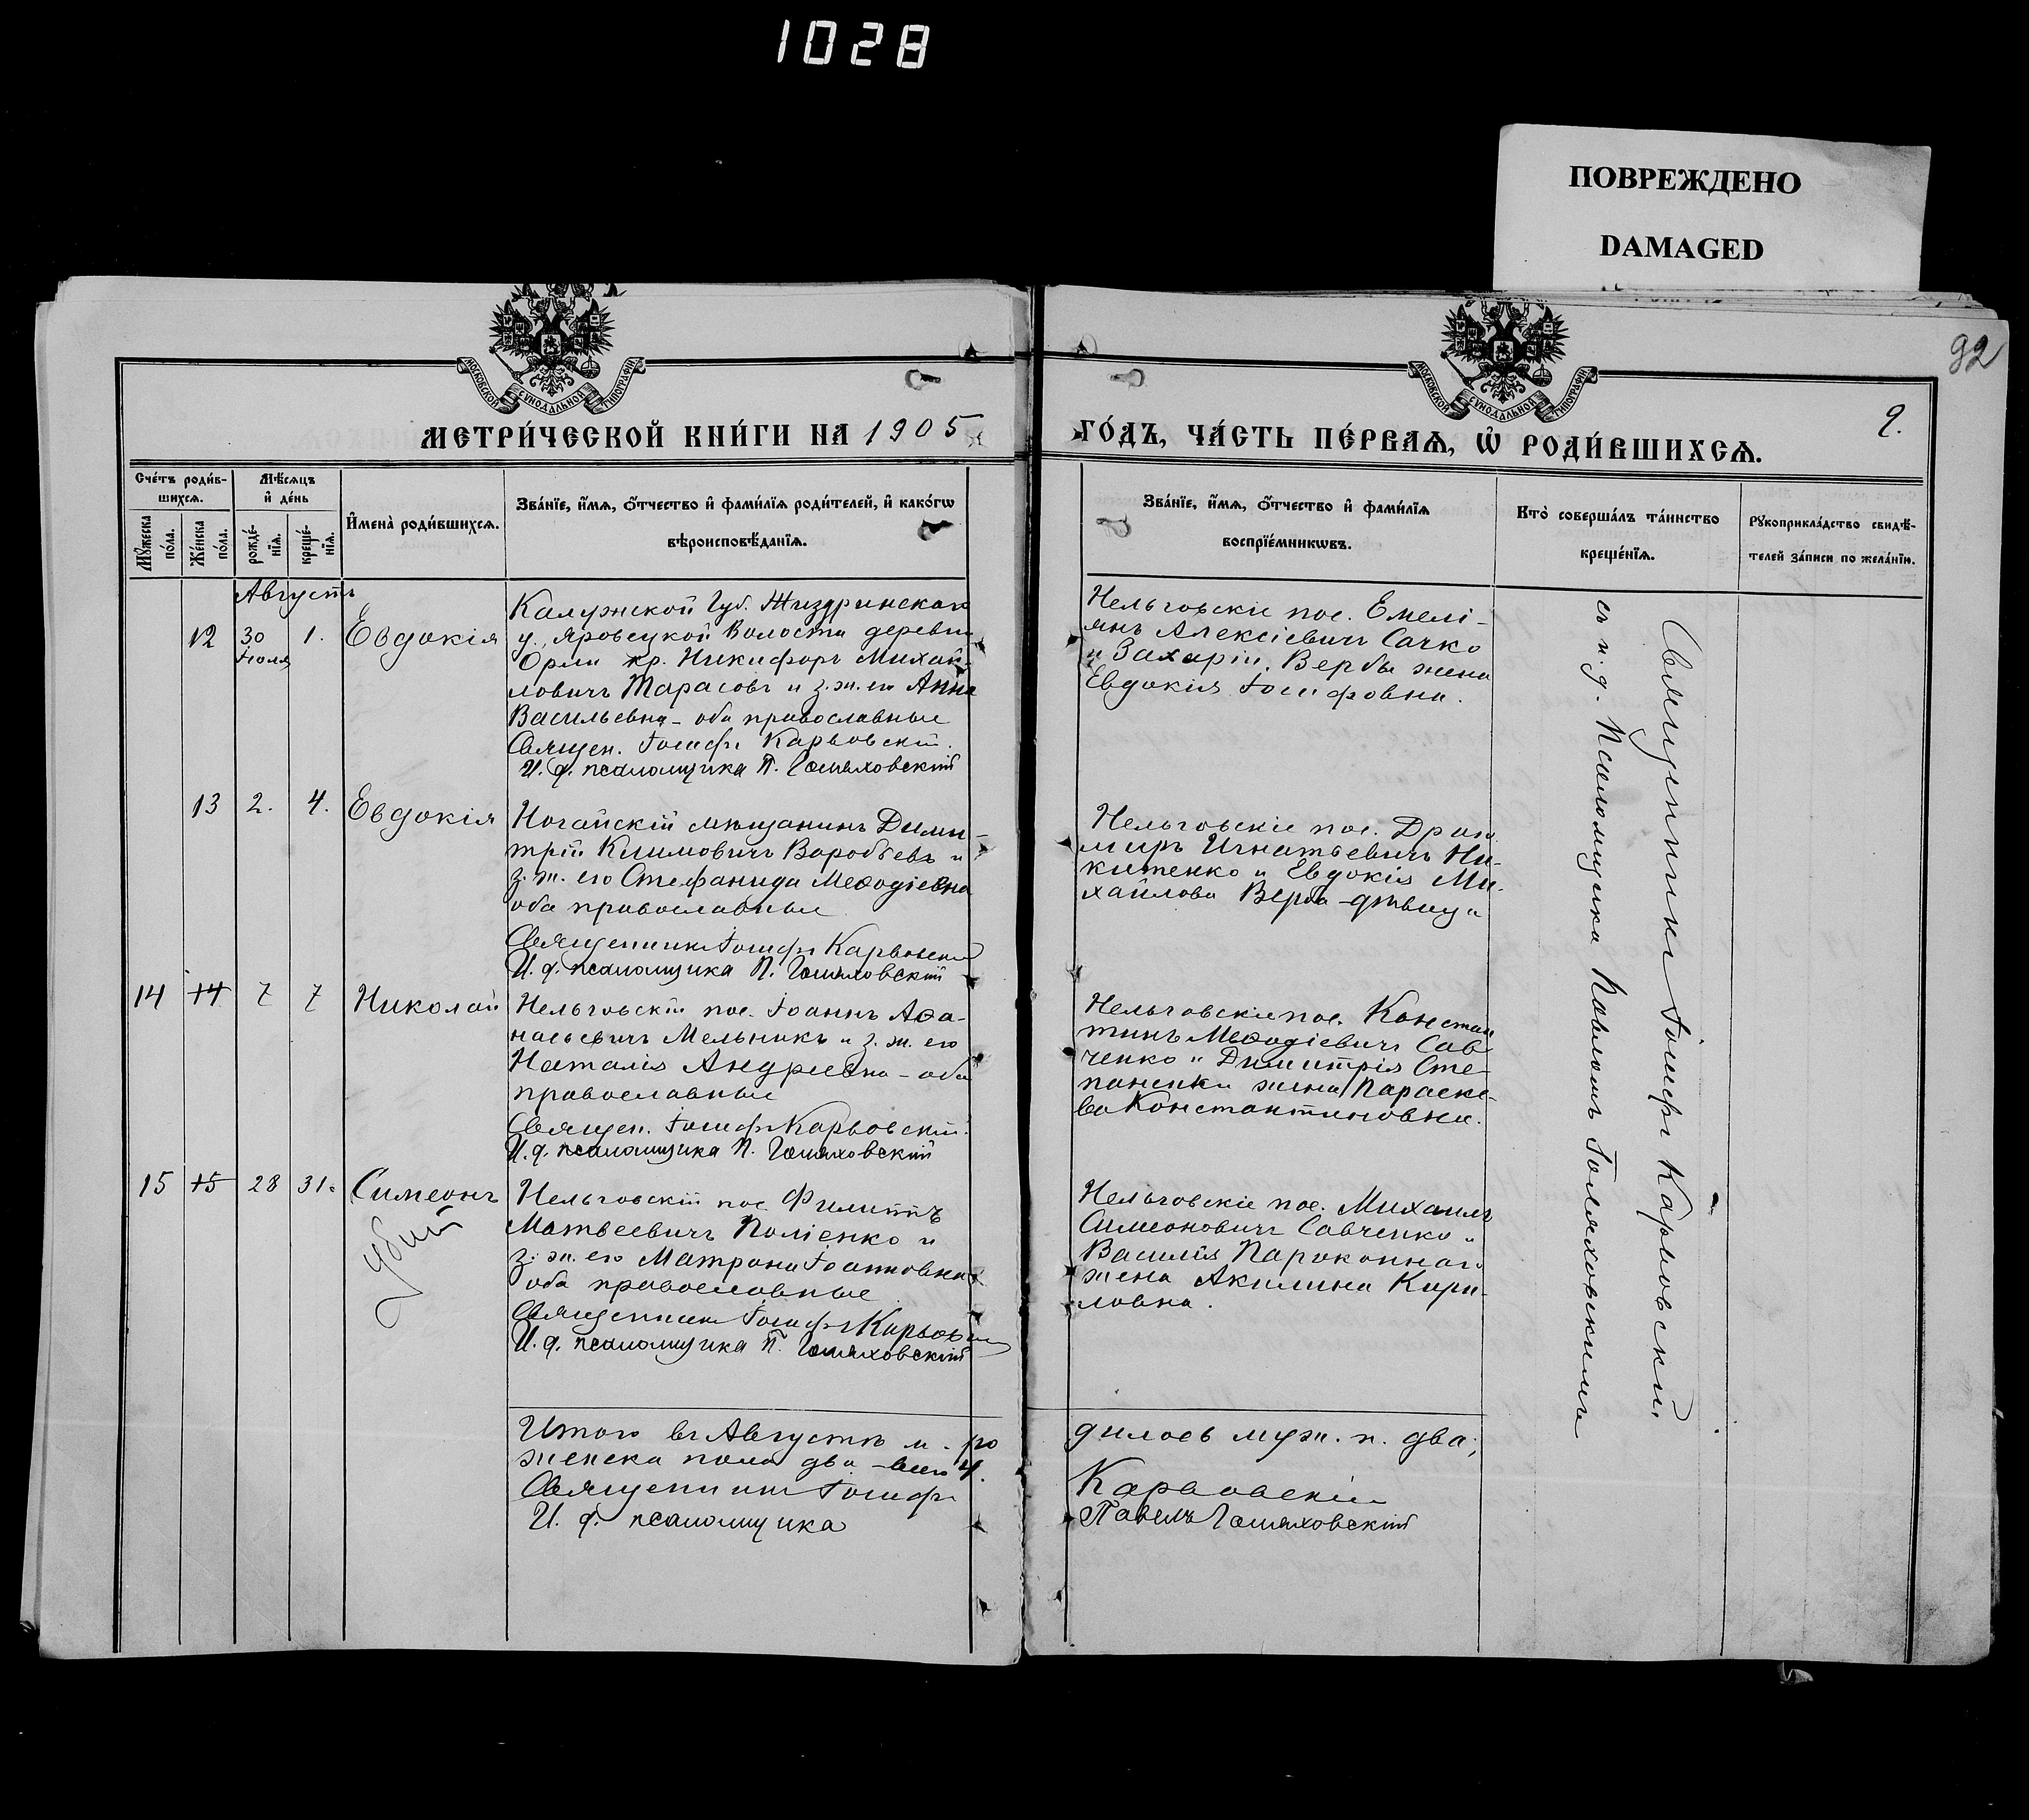 1028
ПОВРЕЖДЕНО
DAMAGED
92
МОСКОВСКОЙ СѴНОДАЛЬНОЙ ТИПОГРАФІИ
МОСКОВСКОЙ СѴНОДАЛЬНОЙ ТИПОГРАФІИ
9.
МЕТРИ́ЧЕСКОЙ КНИ́ГИ НА 1905
ГО́ДЪ, ЧА́СТЬ ПЕ́РВАѦ, Ѡ҆ РОДИ́ВШИХСѦ.
Сче́тъ роди́в-
шихсѧ.
Мꙋ́жеска
по́ла.
Же́нска
по́ла.
Мѣ́сѧцъ
и҆ де́нь
рожде́-
нїѧ.
креще́-
нїѧ.
И҆мена̀ роди́вшихсѧ.
Зва́нїе, и҆́мѧ, ѻ҆́тчество и҆ фами́лїѧ роди́телей, и҆ како́гѡ
вѣроисповѣ́данїѧ.
Зва́нїе, и҆́мѧ, ѻ҆́тчество и҆ фами́лїѧ
воспрїе́мникѡвъ.
Кто̀ соверша́лъ та́инство
креще́нїѧ.
Рꙋкоприкла́дство свидѣ́-
телей за́писи по жела́нїю.
Августъ
12 30 Іюля 1. Евдокія
Калужской Губ. Жиздринскаго
у., Яровецкой Волости деревни
Орли кр. Никифоръ Михай-
ловичъ Тарасовъ и з. ж. его Анна
Васильевна - оба православные
Священ. Іосифъ Карвовскій.
И. д. псаломщика П. Голяховскій
Нельговскіе пос. Емелі-
янъ Алексіевичъ Сачко
и Захаріи Вербы жена
Евдокія Іосифовна.
13 2. 4. Евдокія
Ногайскій мѣщанинъ Дими-
трій Климовичъ Воробьевъ и
з. ж. его Стефанида Меѳодіевна
оба православные
Священникъ Іосифъ Карвовскій
И. д. псаломщика П. Голяховскій
Нельговскіе пос.
Игнатьевичъ Ни-
китенко и Евдокія Ми-
хайлова Верба - дѣвица
14 14 7 7 Николай
Нельговскій пос. Іоаннъ Аѳа-
насьевичъ Мельникъ и з. ж. его
Наталія Андреевна - оба
православные
Священ. Іосифъ Карвовскій.
И. д. псаломщика П. Голяховскій
Нельговскіе пос. Констан
тинъ Меѳодіевичъ Сав-
ченко и Димитрія Сте-
паненки жена Параске-
ва Константиновна.
15 15 28 31. Симеонъ
Нельговскій пос. Филиппъ
Матвеевичъ Поліенко и
з. ж. его Матрона Іоанновна
оба православные
Священникъ Іосифъ Карвовскій
И. д. псаломщика П. Голяховскій
Нельговскіе пос. Михаилъ
Симеоновичъ Савченко и
Василія Пароконнаго
жена Акилина Кири-
ловна.
Священникъ Іосифъ Карвовскій.
съ и. д. Псаломщика Павломъ Голяховскимъ
Итого въ Августѣ м. ро
дилось муж. п. два;
женска пола два - всего 4.
Священникъ Іосифъ
Карвовскій
И. д. псаломщика
Павелъ Голяховскій